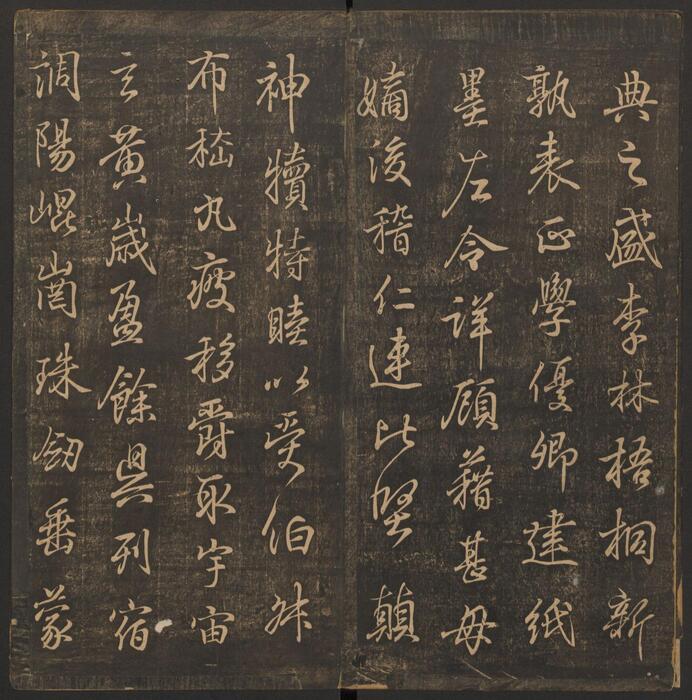 典之盛李林梧桐新
孰表正學優卿建紙
墨左令詳顧藉甚毋
嫡後稽仁連比堅顛
神犢特睦以受伯舛
布嵇丸疲移爵取宇宙
玄黃歲盈餘具刑宿
調陽崐崗珠釰垂蒙